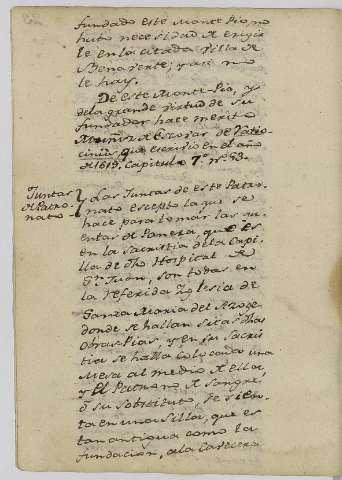 fundado este Monte Pio, no
hubo necesidad de erigir
le en la citada Villa de
Benavente; y así no
le hay.
De este Monte-Pio, y
de la grande virtud de su
fundador hace merito
Muñoz de Escobar de Ratio-
ciniis, que escrivio en el año
de 1619. Capitulo 7º nº 53.
Juntas
de Patro-
nato
Las Juntas de este Patro-
nato excepto la que se
hace para tomar las qu-
entas de Panera, que es
en la Sacristia de la Capi-
lla de dho Hospital de
Sn Juan, son todas en
la referida Yglesia de
Santa Maria del Azogue
donde se hallan sitas dhas
obras-Pias, y en su Sacris
tia se halla colocada una
Mesa al medio de ella,
y el Patrono de Sangre,
ó su sobstituto, se sien-
ta en una silla, que es
tan antigua como la
fundacion, a la cavecera